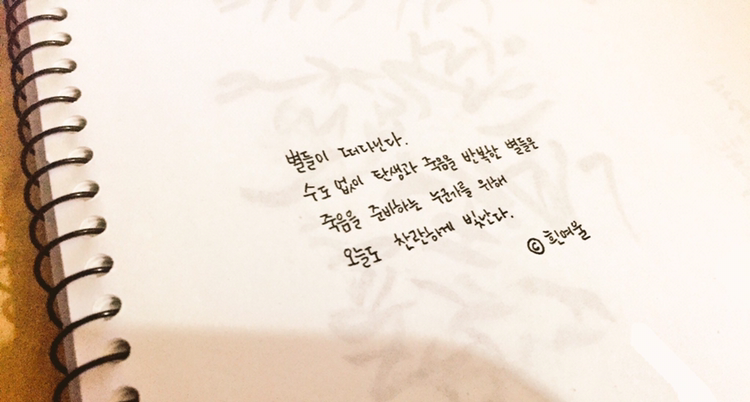 별들이 떠다닌다.
수도 없이 탄생과 죽음을 반복한 별들은
죽음을 준비하는 누군가를 위해
오늘도 찬란하게 빛난다.
ⓒ흰여울